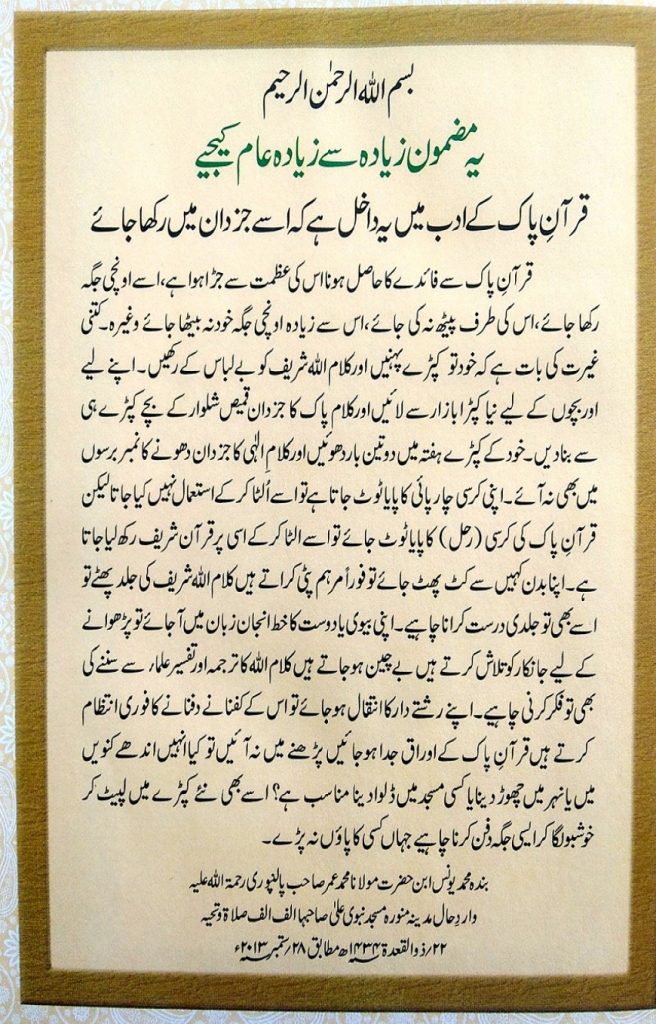 بسم اللہ الرحمٰن الرحیم
یہ مضمون زیادہ سے زیادہ عام کیجیے
قرآنِ پاک کے ادب میں یہ داخل ہے کہ اسے جزدان میں رکھا جائے
قرآنِ پاک سے فائدے کا حاصل ہونا اس کی عظمت سے جڑا ہوا ہے، اسے اونچی جگہ
رکھا جائے، اس کی طرف پیٹھ نہ کی جائے، اس سے زیادہ اونچی جگہ خود نہ بیٹھا جائے وغیرہ۔ کتنی
غیرت کی بات ہے کہ خود تو کپڑے پہنیں اور کلام اللہ شریف کو بے لباس کے رکھیں۔ اپنے لیے
اور بچوں کے لیے نیا کپڑا بازار سے لائیں اور کلامِ پاک کا جزدان قمیص شلوار کے بچے کپڑے ہی
سے بنادیں۔ خود کے کپڑے ہفتہ میں دو تین بار دھوئیں اور کلامِ الٰہی کا جزدان دھونے کا نمبر برسوں
میں بھی نہ آئے۔ اپنی کرسی چارپائی کا پایا ٹوٹ جاتا ہے تو اسے اُلٹا کر کے استعمال نہیں کیا جاتا لیکن
قرآنِ پاک کی کرسی (رحل) کا پایا ٹوٹ جائے تو اسے الٹا کر کے اسی پر قرآن شریف رکھ لیا جاتا
ہے۔ اپنا بدن کہیں سے کٹ پھٹ جائے تو فوراً مرہم پٹی کراتے ہیں کلام اللہ شریف کی جلد پھٹے تو
اسے بھی تو جلدی درست کرانا چاہیے۔ اپنی بیوی یا دوست کا خط انجان زبان میں آجائے تو پڑھوانے
کے لیے جانکار کو تلاش کرتے ہیں بے چین ہو جاتے ہیں کلام اللہ کا ترجمہ اور تفسیر علماء سے سننے کی
بھی تو فکر کرنی چاہیے۔ اپنے رشتے دار کا انتقال ہو جائے تو اس کے کفنانے دفنانے کا فوری انتظام
کرتے ہیں قرآنِ پاک کے اوراق جدا ہو جائیں پڑھنے میں نہ آئیں تو کیا انہیں اندھے کنویں
میں یا نہر میں چھوڑ دینا یا کسی مسجد میں ڈلوا دینا مناسب ہے؟ اسے بھی نئے کپڑے میں لپیٹ کر
خوشبو لگا کر ایسی جگہ دفن کرنا چاہیے جہاں کسی کا پاؤں نہ پڑے۔
بندہ محمد یونس ابن حضرت مولانا محمد عمر صاحب پالنپوری رحمۃ اللہ علیہ
واردِ حال مدینہ منورہ مسجد نبوی علیٰ صاحبہا الف الف صلاۃ وتحیہ
۲۲؍ذوالقعدۃ ۱۴۳۴ھ مطابق ۲۸؍ستمبر ۲۰۱۳ء